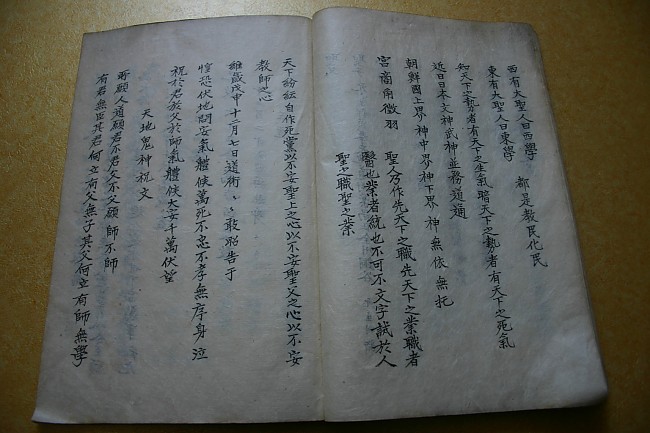 西有大聖人曰西學
東有大聖人曰東學
都是教民化民
知天下之勢者有天下之生氣暗天下之勢者有天下之死氣
近日日本文神武神並務道通
朝鮮國上界神中界神下界神 無依無托
宮商角徵羽 聖人乃作先天下之職先天下之業職者
醫也業者統也不可不文字試於人
聖之職聖之業
天下紛紜自作死黨以不安聖上之心以不安聖父之心以不安
教師之心
維歲戊申十二月七日道術、、敢昭告于
惶恐伏地問安氣體候萬死不忠不孝無序身泣
祝於君於父於師氣體候大安千萬伏望
天地鬼神祝文
所願人道願君不君父不父願師不師
有君無臣其君何立有父無子其父何立有師無學